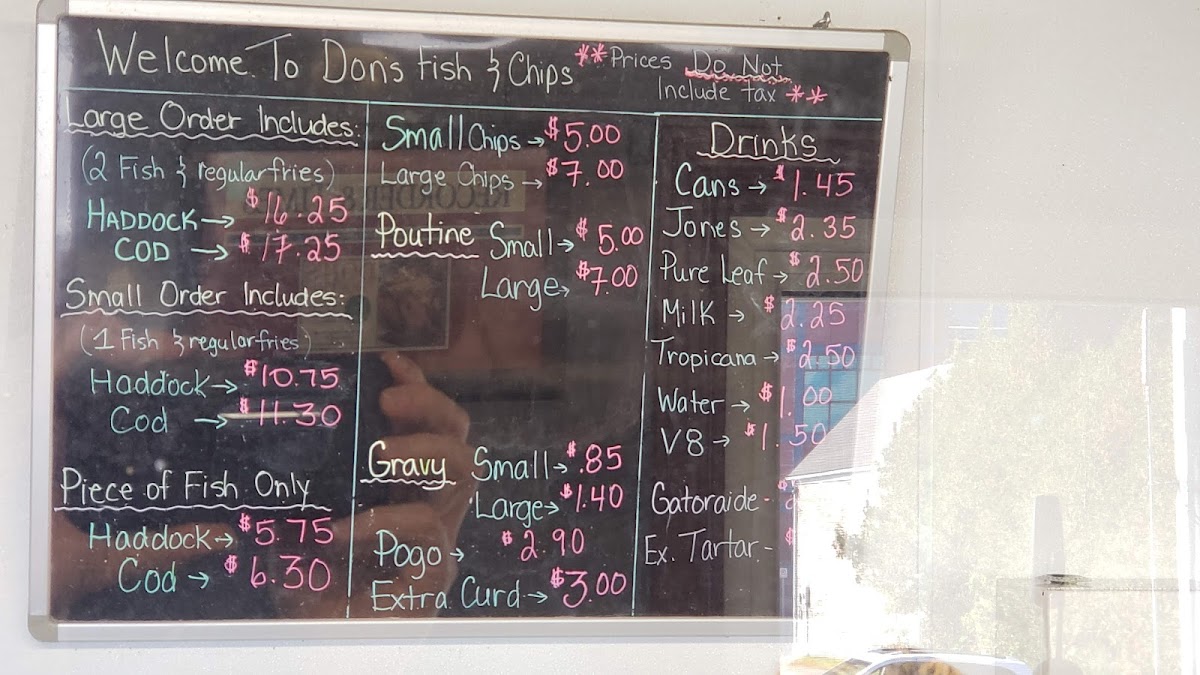 Welcome To Don's Fish & Chips
**Prices Do Not
Include tax **
Large Order Includes:
(2 Fish & regular fries)
HADDOCK → $16.25
COD → $17.25
Small Order Includes:
(1 Fish & regular fries)
Haddock → $10.75
Cod → $11.30
Piece of Fish Only
Haddock → $5.75
Cod → $6.30
Small Chips → $5.00
Large Chips → $7.00
Poutine Small → $5.00
Large → $7.00
Gravy Small → $.85
Large → $1.40
Pogo → $2.90
Extra Curd → $3.00
Drinks
Cans → $1.45
Jones → $2.35
Pure Leaf → $2.50
Milk → $2.25
Tropicana → $2.50
Water → $1.00
V8 → $1.50
Gatoraide - $
Ex. Tartar - $